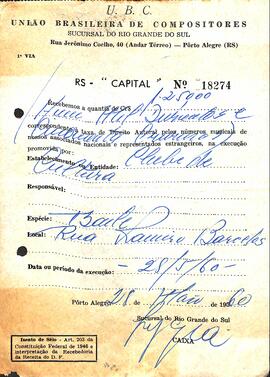 U. B. C.
UNIÃO BRASILEIRA DE COMPOSITORES
SUCURSAL DO RIO GRANDE DO SUL
Rua Jerônimo Coelho, 40 (Andar Térreo) — Pôrto Alegre (RS)
1ª VIA
RS - "CAPITAL" Nº 18274
Recebemos a quantia de Cr$ 1.250,00
Hum Mil Duzentos e
Cincoenta
correspondente a taxa de Direito Autoral pelos números musicais de
nossos associados nacionais e representados estrangeiros, na execução
promovida por:
Estabelecimento ou Entidade: Clube de
Cultura
Responsável:
Espécie: Baile
Local: Rua Ramiro Barcelos
Data ou período da execução: - 28/5/60 -
Pôrto Alegre, 28 Maio 1960
Sucursal do Rio Grande do Sul
CAIXA
Isento de Sêlo - Art. 203 da
Constituição Federal de 1946 e
interpretação da Recebedoria
da Receita do D. F.